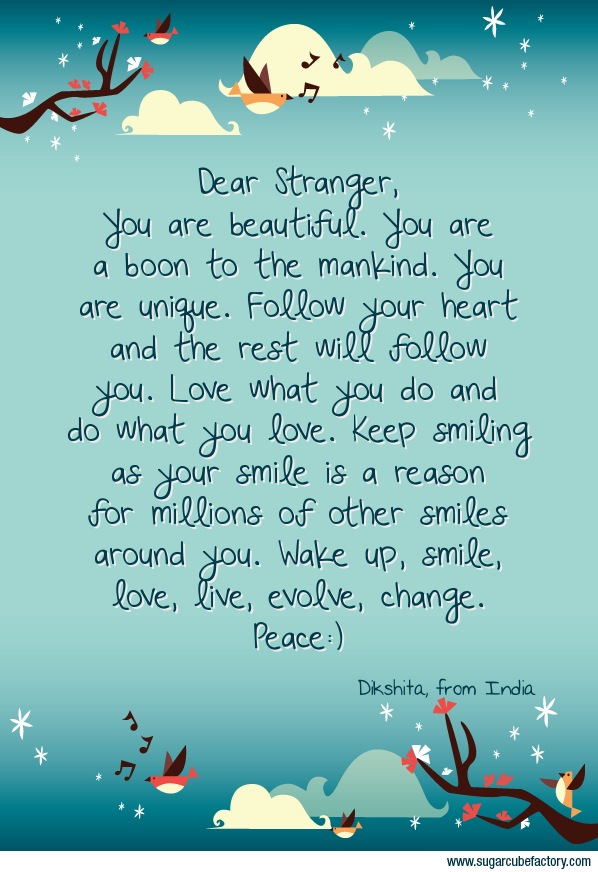 Dear Stranger,
You are beautiful. You are
a boon to the mankind. You
are unique. Follow your heart
and the rest will follow
you. Love what you do and
do what you love. Keep smiling
as your smile is a reason
for millions of other smiles
around you. Wake up, smile,
love, live, evolve, change.
Peace:)
Dikshita, from India
www.sugarcubefactory.com